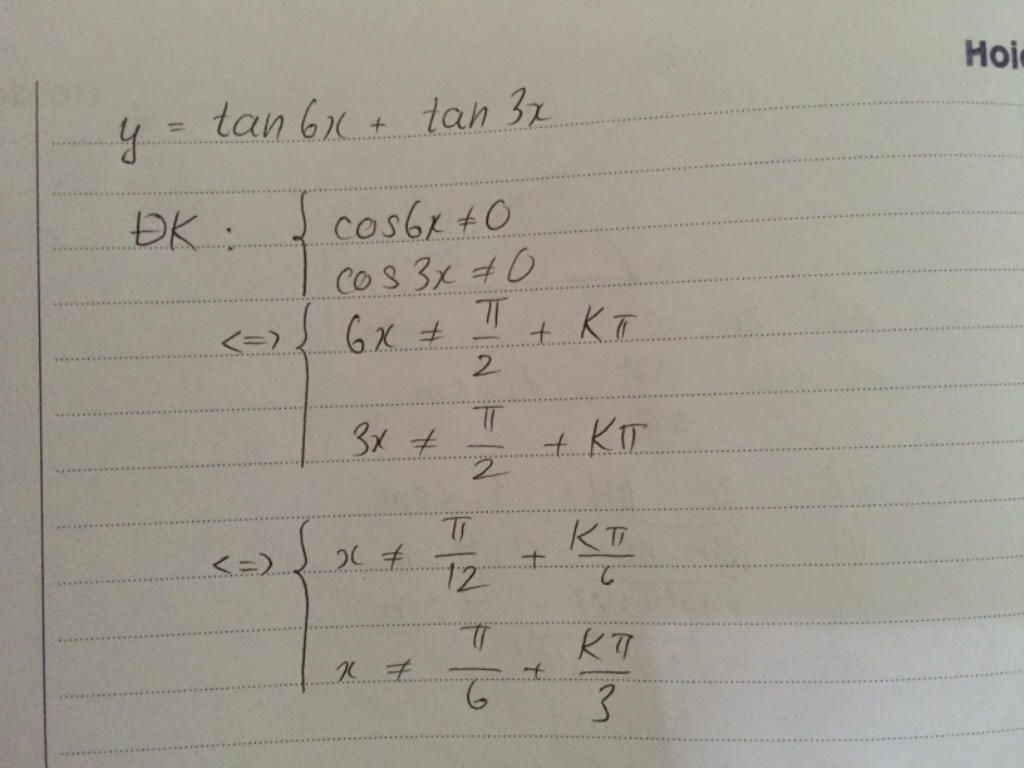 Hoid
y = tan 6x + tan 3x
ĐK : { cos6x ≠ 0
cos 3x ≠ 0
<=> { 6x ≠ π/2 + Kπ
3x ≠ π/2 + Kπ
<=> { x ≠ π/12 + Kπ/6
x ≠ π/6 + Kπ/3